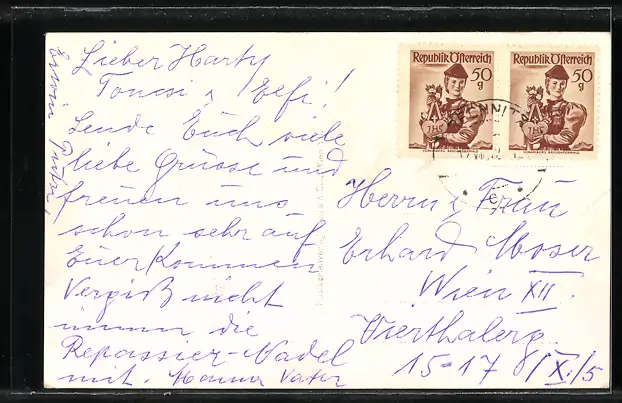 Lieber Harty
Tonsi, Elfi!
Sende Euch viele
liebe Grüsse und
freuen uns
schon sehr auf
Euer Kommen
Vergiß nicht
die
Repassier-Nadel
mit. Mama Vater
Republik Österreich
50
g
Republik Österreich
50
g
Herrn & Frau
Erhard Moser
Wien XII.
Vierthalerg
15-17 8/X./5